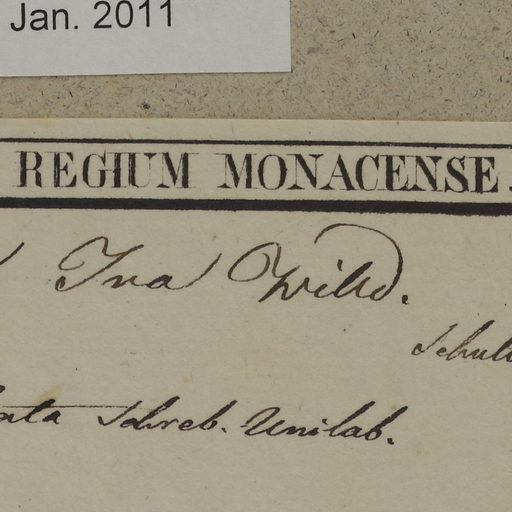 Jan. 2011
REGIUM MONACENSE.
Iva Willd.
Schult
ata Schreb. Unilab.